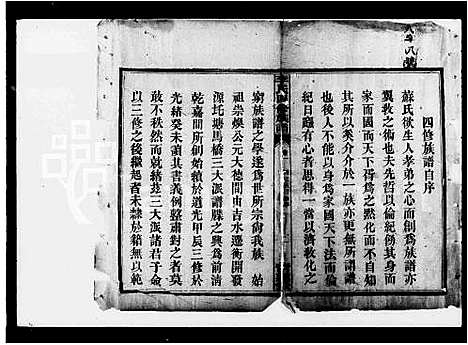 四修族譜自序
蘇氏欲生人孝弟之心而創爲族譜亦
翼教之㣲也夫先哲以倫紀傍其身而
家而國而天下得爲之黙化而不自知
其所以炱介介於一族亦更無所謂譜
也後人不能以身爲家國天下法而倫
紀日廢有心者思得一當以濟教化之
窮族譜之學遂爲世所宗尚我族 始
祖崇燊公元大德間由吉水遷衡開發
源託塘馬橋三大派譜牒之興爲前淸
乾嘉間所創始續於道光甲辰三修於
光緒癸未讀其書義例整肅對之者莫
敢不秩然而就緒茲三大派諸君子僉
以三修之後繼起者未隸於籍無以範